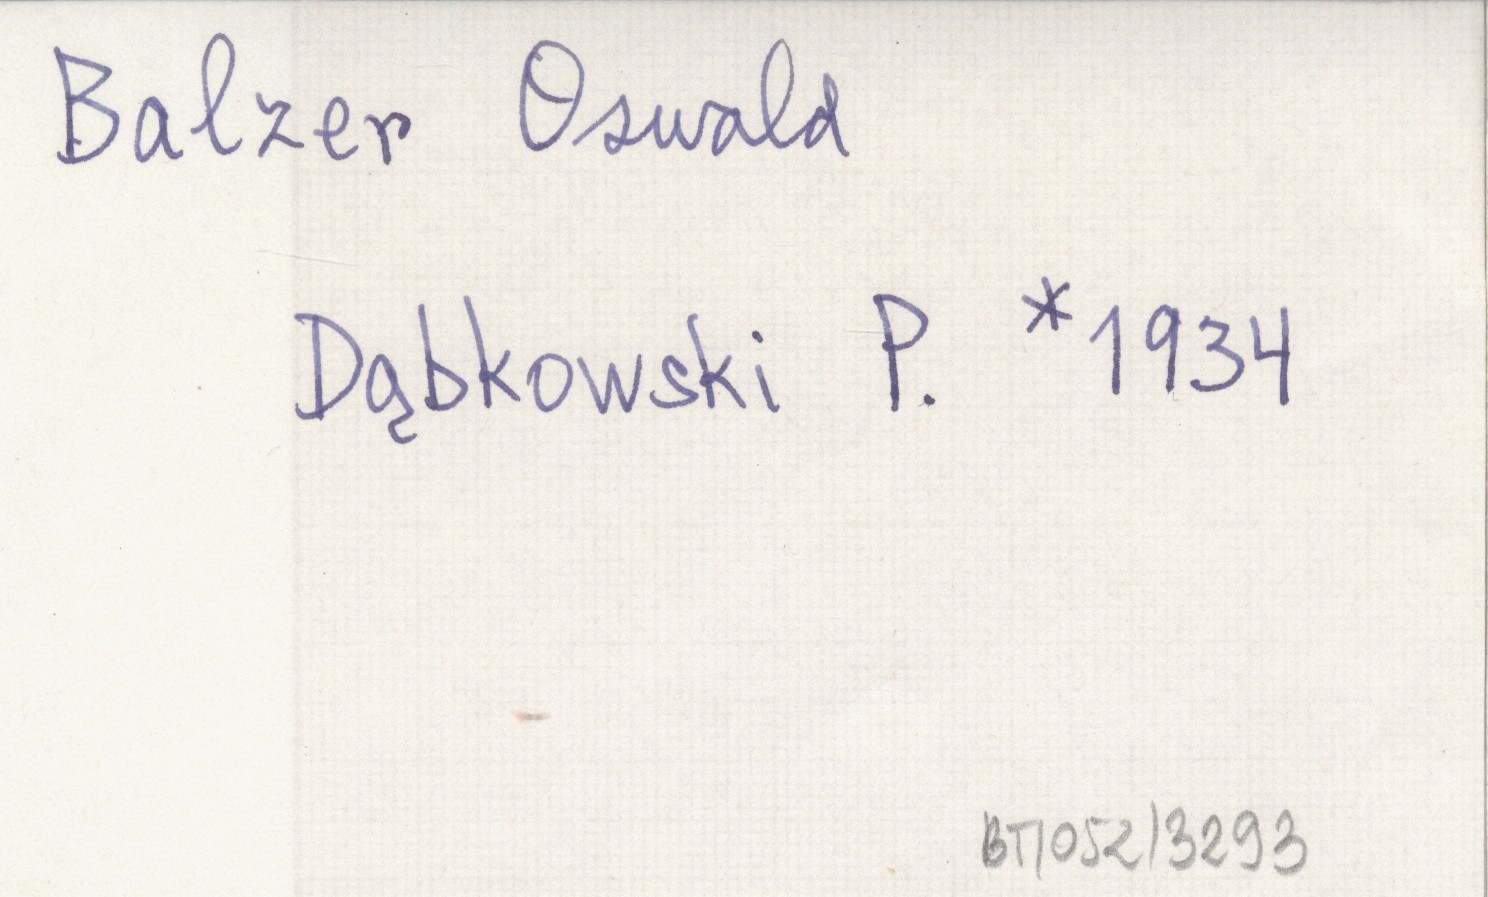 Balzer Oswald
Dąbkowski P. *1934
BT/052/3293